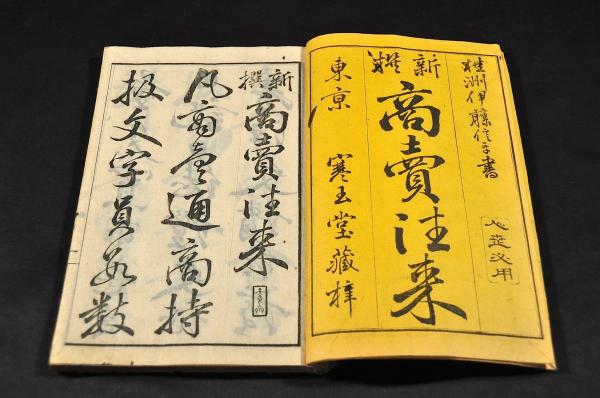 桂洲伊藤信平書
新撰
商賣往来
東京 寒玉堂藏梓
新撰
商賣往来
凡商売通商持
扱文字員数